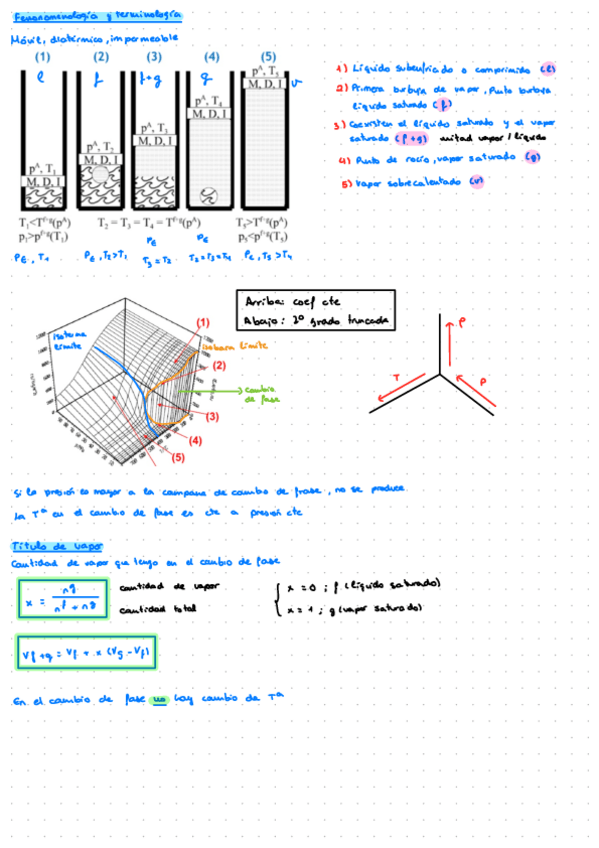 Fenomenología y terminología
Móvil, diatérmico, impermeable
(1) (2) (3) (4) (5)
l f f+g g v
p^A, T_1
M, D, I
p^A, T_2
M, D, I
p^A, T_3
M, D, I
p^A, T_4
M, D, I
p^A, T_5
M, D, I
T_1<T^f-g(p^A) T_2 = T_3 = T_4 = T^f-g(p^A) T_5>T^f-g(p^A)
p_1>p^f-g(T_1) p_5<p^f-g(T_5)
P_E, T_1 P_E, T_2>T_1 P_E T_3=T_2 P_E T_2=T_3=T_4 P_E, T_5>T_4
1) Líquido subenfriado o comprimido (l)
2) Primera burbuja de vapor, Punto burbuja
líquido saturado (f)
3) Coexisten el líquido saturado y el vapor
saturado (f+g) mitad vapor / líquido
4) Punto de rocío, vapor saturado (g)
5) Vapor sobrecalentado (v)
Arriba: coef cte
Abajo: 3º grado truncada
isoterma
límite
isobara límite
cambio
de fase
(1)
(2)
(3)
(4)
(5)
P
T
P
Si la presión es mayor a la campana de cambio de frase, no se produce
La Tª en el cambio de fase es cte a presión cte
Título de vapor
Cantidad de vapor que tengo en el cambio de fase
x = ng / nf + ng
cantidad de vapor
cantidad total
x = 0 ; f (líquido saturado)
x = 1 ; g (vapor saturado)
Vf+g = Vf + x (Vg - Vf)
En el cambio de fase no hay cambio de Tª